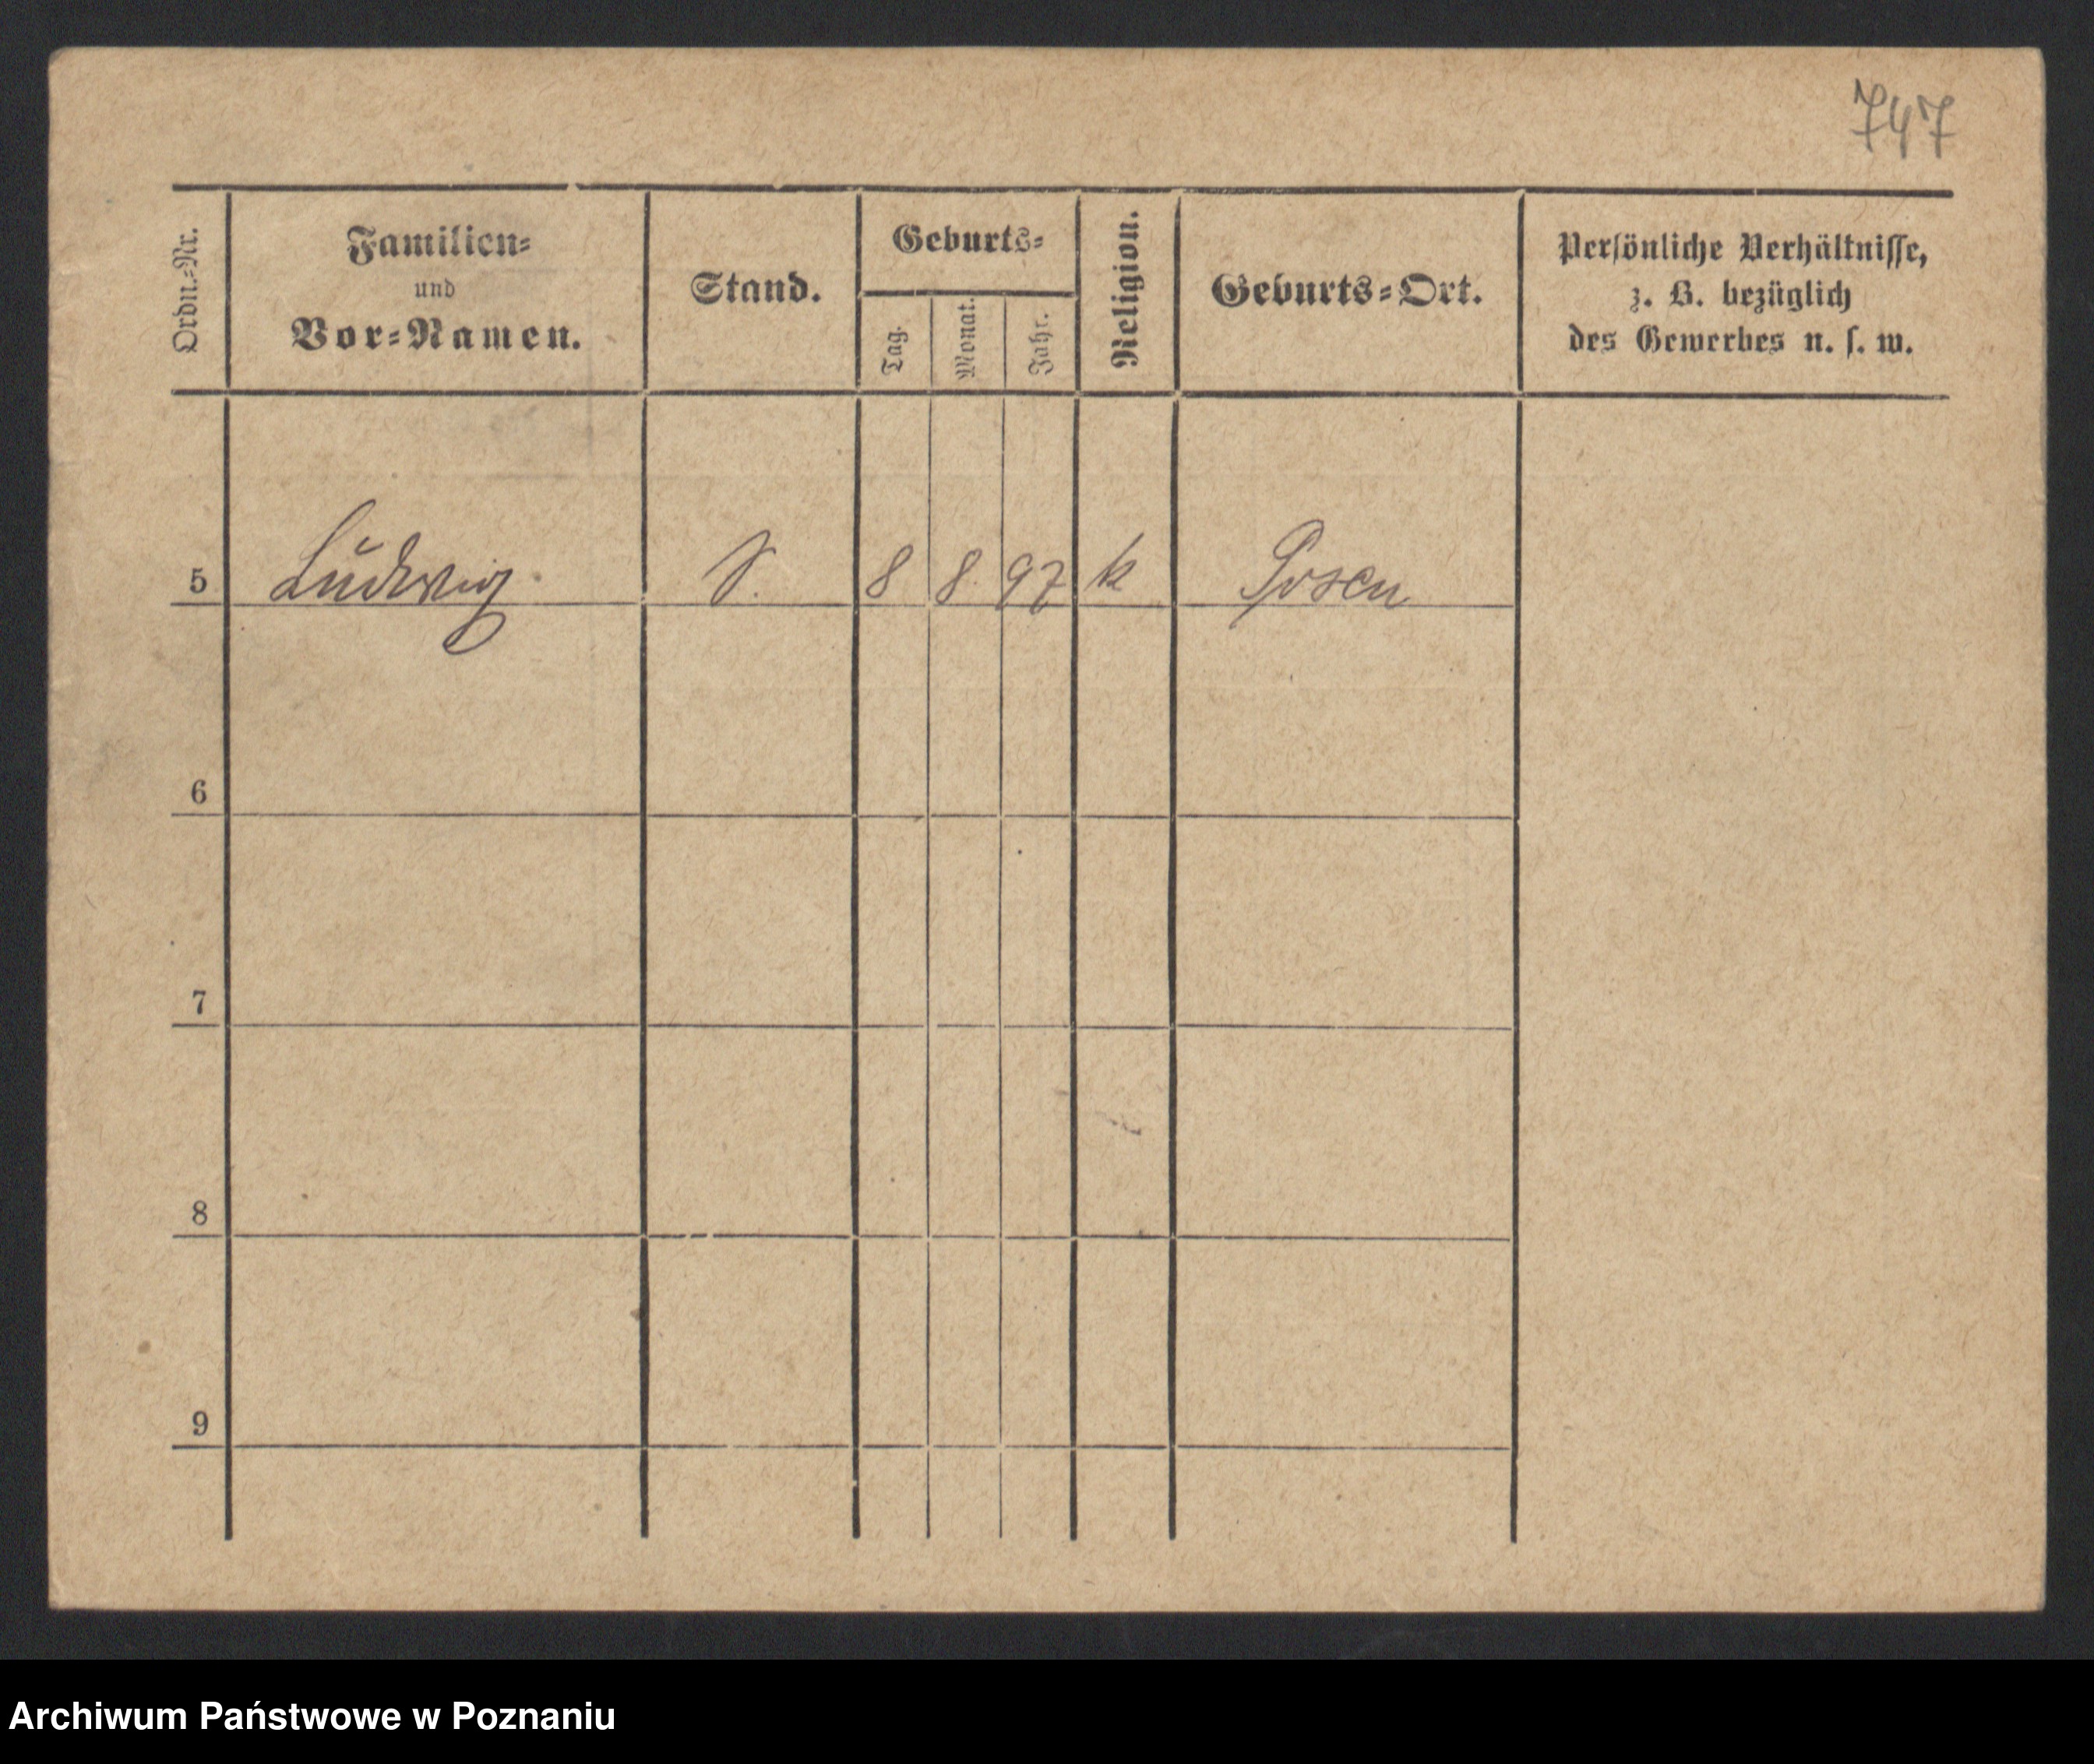 747
Ordn.-Nr.
Familien-
und
Vor-Namen.
Stand.
Geburts-
Tag.
Monat.
Jahr.
Religion.
Geburts-Ort.
Persönliche Verhältnisse,
z. B. bezüglich
des Gewerbes u. s. w.
5 Ludwig S. 8 8. 97 k Posen
6
7
8
9
Archiwum Państwowe w Poznaniu